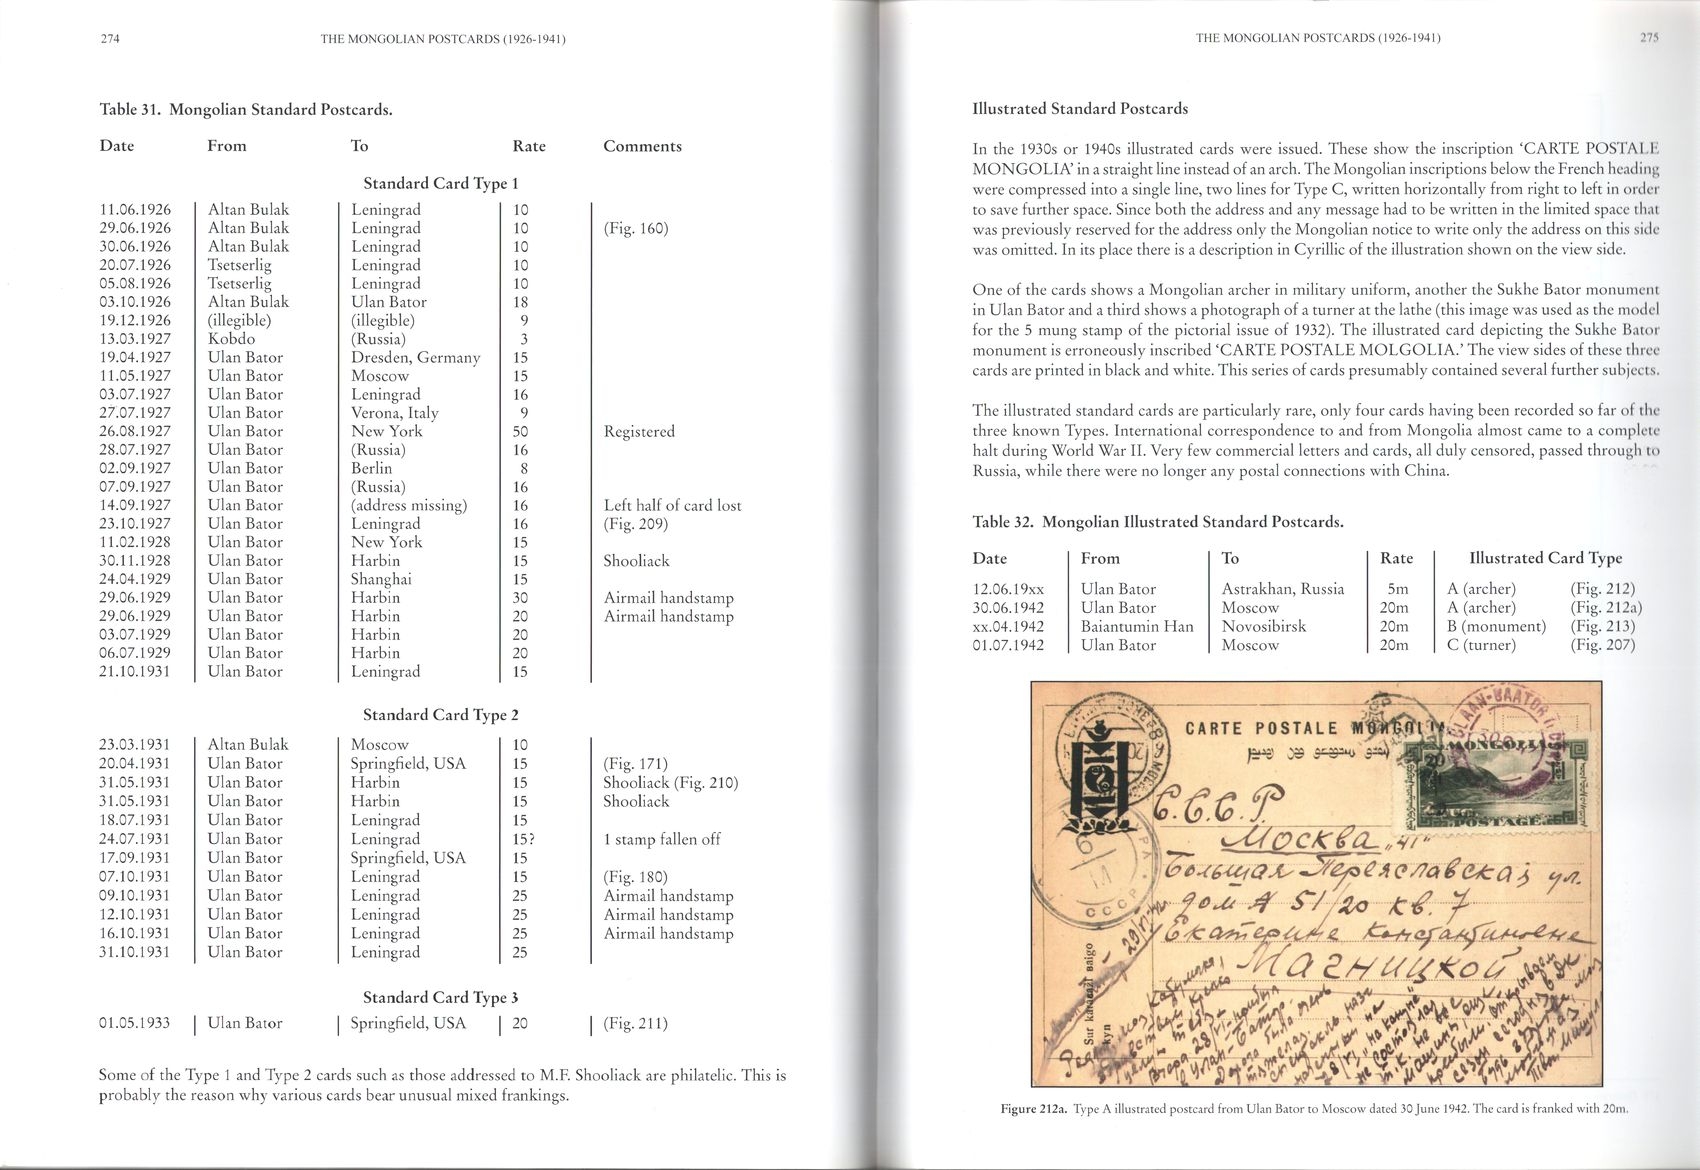 274
THE MONGOLIAN POSTCARDS (1926-1941)
Table 31. Mongolian Standard Postcards.
Date From To Rate Comments
Standard Card Type 1
11.06.1926 Altan Bulak Leningrad 10
29.06.1926 Altan Bulak Leningrad 10 (Fig. 160)
30.06.1926 Altan Bulak Leningrad 10
20.07.1926 Tsetserlig Leningrad 10
05.08.1926 Tsetserlig Leningrad 10
03.10.1926 Altan Bulak Ulan Bator 18
19.12.1926 (illegible) (illegible) 9
13.03.1927 Kobdo (Russia) 3
19.04.1927 Ulan Bator Dresden, Germany 15
11.05.1927 Ulan Bator Moscow 15
03.07.1927 Ulan Bator Leningrad 16
27.07.1927 Ulan Bator Verona, Italy 9
26.08.1927 Ulan Bator New York 50 Registered
28.07.1927 Ulan Bator (Russia) 16
02.09.1927 Ulan Bator Berlin 8
07.09.1927 Ulan Bator (Russia) 16
14.09.1927 Ulan Bator (address missing) 16 Left half of card lost
23.10.1927 Ulan Bator Leningrad 16 (Fig. 209)
11.02.1928 Ulan Bator New York 15
30.11.1928 Ulan Bator Harbin 15 Shooliack
24.04.1929 Ulan Bator Shanghai 15
29.06.1929 Ulan Bator Harbin 30 Airmail handstamp
29.06.1929 Ulan Bator Harbin 20 Airmail handstamp
03.07.1929 Ulan Bator Harbin 20
06.07.1929 Ulan Bator Harbin 20
21.10.1931 Ulan Bator Leningrad 15
Standard Card Type 2
23.03.1931 Altan Bulak Moscow 10
20.04.1931 Ulan Bator Springfield, USA 15 (Fig. 171)
31.05.1931 Ulan Bator Harbin 15 Shooliack (Fig. 210)
31.05.1931 Ulan Bator Harbin 15 Shooliack
18.07.1931 Ulan Bator Leningrad 15
24.07.1931 Ulan Bator Leningrad 15? 1 stamp fallen off
17.09.1931 Ulan Bator Springfield, USA 15
07.10.1931 Ulan Bator Leningrad 15 (Fig. 180)
09.10.1931 Ulan Bator Leningrad 25 Airmail handstamp
12.10.1931 Ulan Bator Leningrad 25 Airmail handstamp
16.10.1931 Ulan Bator Leningrad 25 Airmail handstamp
31.10.1931 Ulan Bator Leningrad 25
Standard Card Type 3
01.05.1933 Ulan Bator Springfield, USA 20 (Fig. 211)
Some of the Type 1 and Type 2 cards such as those addressed to M.F. Shooliack are philatelic. This is
probably the reason why various cards bear unusual mixed frankings.
THE MONGOLIAN POSTCARDS (1926-1941)
275
Illustrated Standard Postcards
In the 1930s or 1940s illustrated cards were issued. These show the inscription ‘CARTE POSTALE
MONGOLIA’ in a straight line instead of an arch. The Mongolian inscriptions below the French heading
were compressed into a single line, two lines for Type C, written horizontally from right to left in order
to save further space. Since both the address and any message had to be written in the limited space that
was previously reserved for the address only the Mongolian notice to write only the address on this side
was omitted. In its place there is a description in Cyrillic of the illustration shown on the view side.
One of the cards shows a Mongolian archer in military uniform, another the Sukhe Bator monument
in Ulan Bator and a third shows a photograph of a turner at the lathe (this image was used as the model
for the 5 mung stamp of the pictorial issue of 1932). The illustrated card depicting the Sukhe Bator
monument is erroneously inscribed ‘CARTE POSTALE MOLGOLIA.’ The view sides of these three
cards are printed in black and white. This series of cards presumably contained several further subjects.
The illustrated standard cards are particularly rare, only four cards having been recorded so far of the
three known Types. International correspondence to and from Mongolia almost came to a complete
halt during World War II. Very few commercial letters and cards, all duly censored, passed through to
Russia, while there were no longer any postal connections with China.
Table 32. Mongolian Illustrated Standard Postcards.
Date From To Rate Illustrated Card Type
12.06.19xx Ulan Bator Astrakhan, Russia 5m A (archer) (Fig. 212)
30.06.1942 Ulan Bator Moscow 20m A (archer) (Fig. 212a)
xx.04.1942 Baiantumin Han Novosibirsk 20m B (monument) (Fig. 213)
01.07.1942 Ulan Bator Moscow 20m C (turner) (Fig. 207)
CARTE POSTALE MONGOLIA
MONGOLIA
20 20
POSTAGE
С.С.С.Р.
Москва „41"
Большая Переяславская ул.
дом № 51/20 кв. 7
Екатерине Константиновне
Магницкой
СССР
Sur karaçazi baigo
kyn
Figure 212a. Type A illustrated postcard from Ulan Bator to Moscow dated 30 June 1942. The card is franked with 20m.